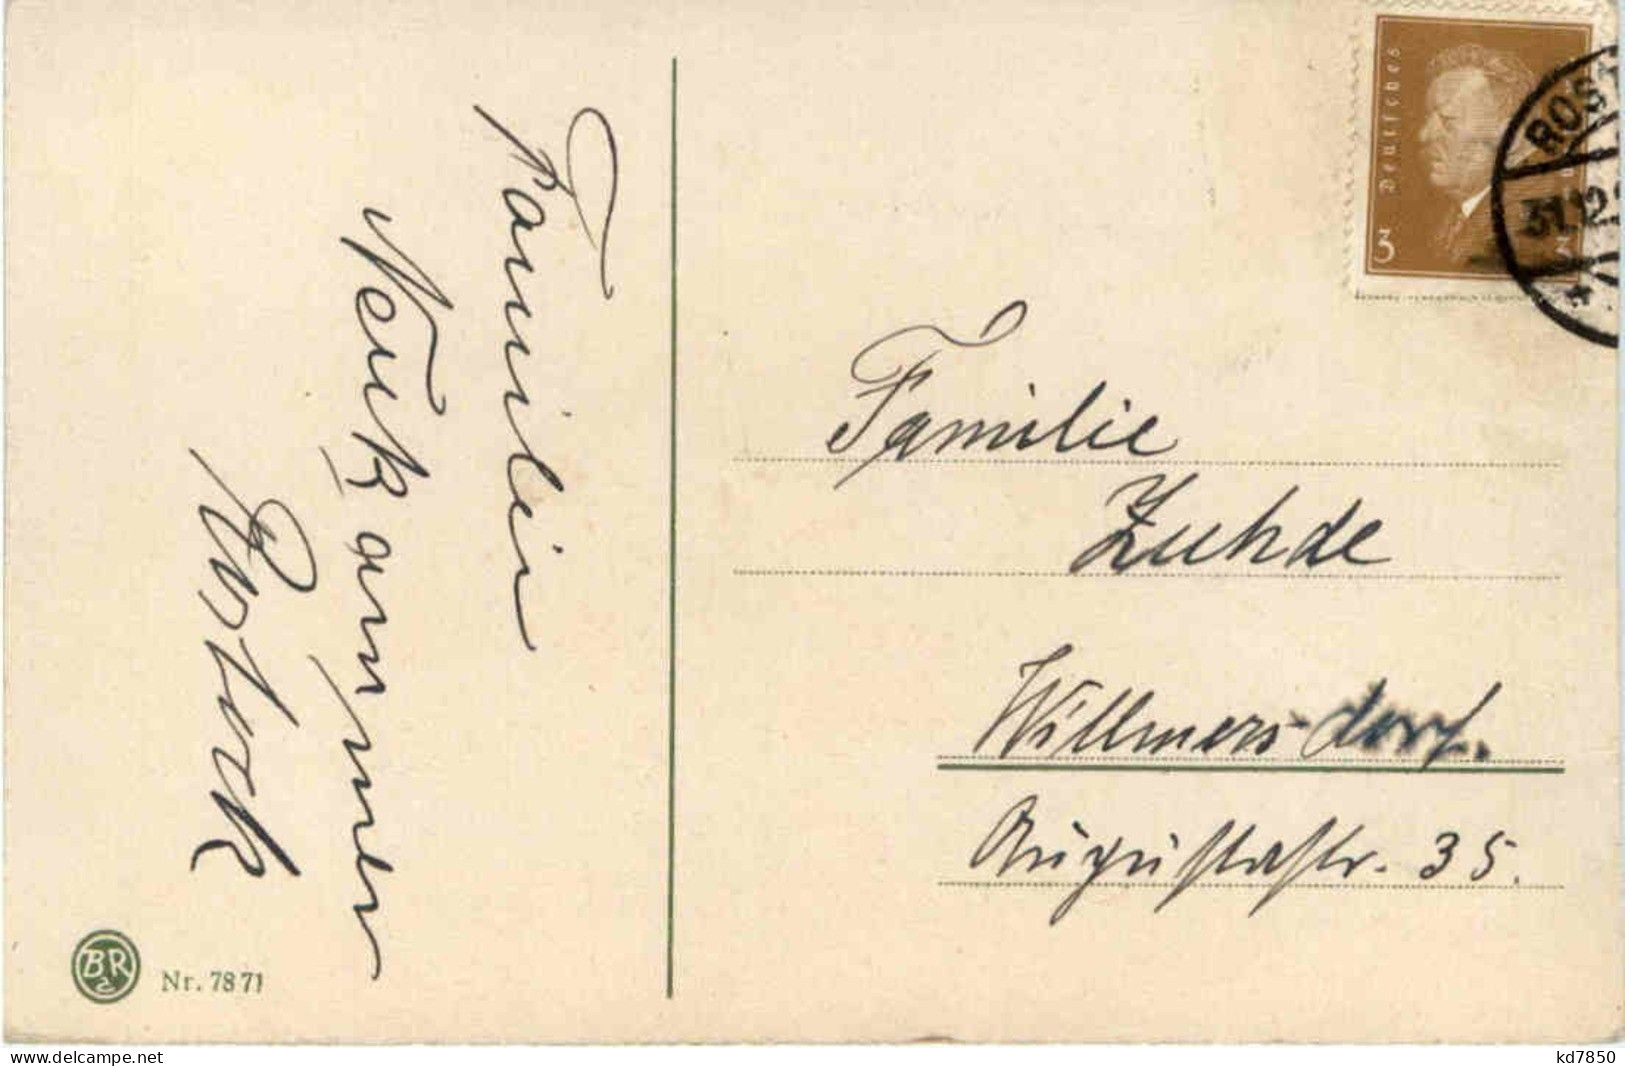 Familie
Neukammer
Rostock
Deutsches
3
3
ROST
31.12.
Familie
Zuhde
Willmers-dorf.
Augustastr. 35.
BR
Nr. 7871
delcampe.net
kd7850